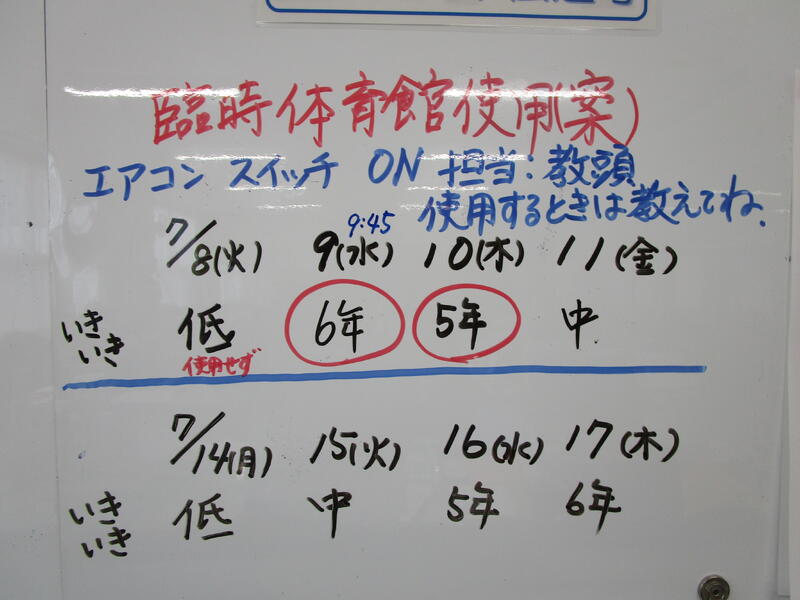 臨時体育館使用(案)
エアコン スイッチ ON 担当:教頭
使用するときは教えてね.
9:45
7/8(火) 9(水) 10(木) 11(金)
いきいき 低 6年 5年 中
使用せず
7/14(月) 15(火) 16(水) 17(木)
いきいき 低 中 5年 6年